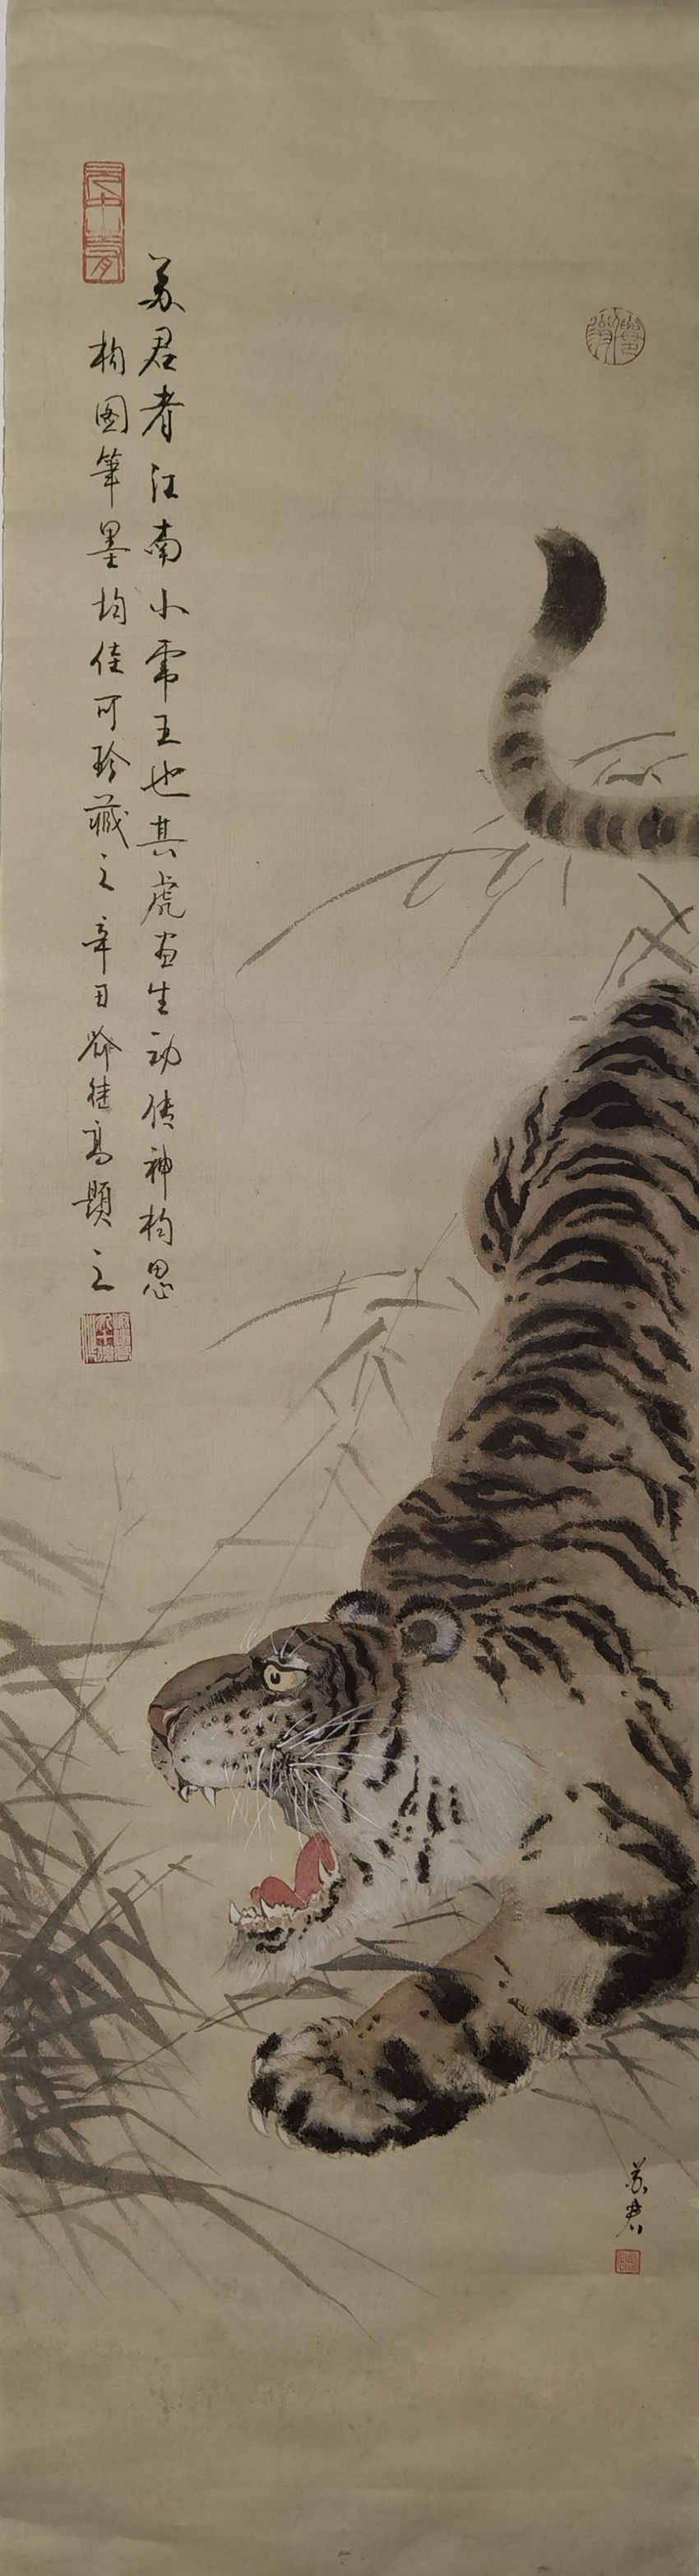 苏君者江南小霸王也其虎画生动传神构思
构图筆墨均佳可珍藏之辛丑桂高題之
苏君